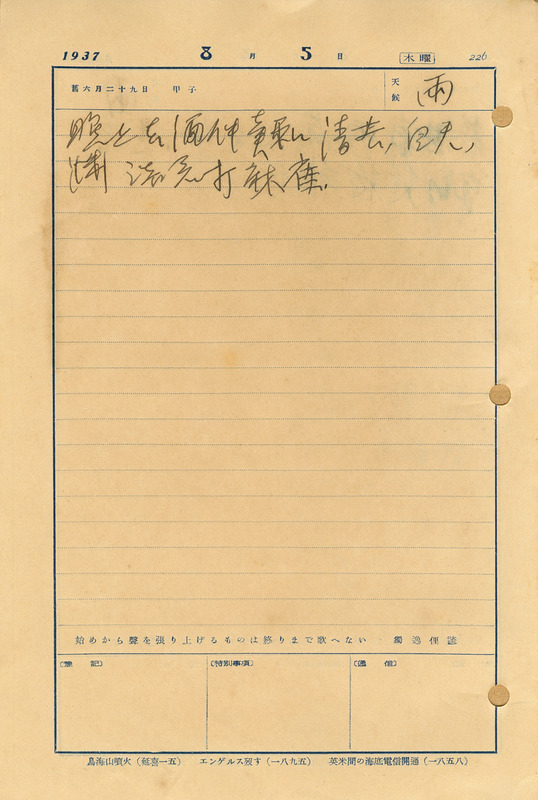 1937 8月5日 木曜 226
舊六月二十九日 甲子 天候 雨
晚上去酒仲 清 白天,
打麻雀.
始めから聲を張り上げるものは終りまで歌へない 獨逸俚諺
〔豫記〕 〔特別事項〕 〔通信〕
鳥海山噴火（延喜一五） エンゲルス歿す（一八九五） 英米間の海底電信開通（一八五八）